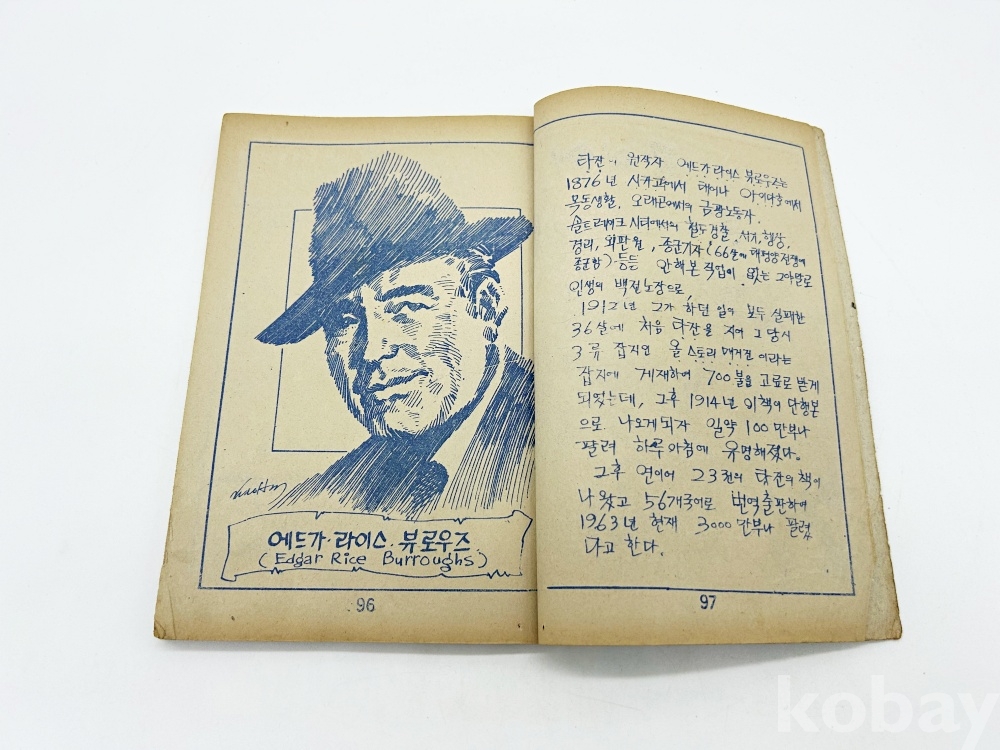 에드가·라이스·뷰로우즈
(Edgar Rice Burroughs)
96
타잔의 원작자 에드가·라이스 뷰로우즈는
1876년 시카고에서 태어나 아이다호에서
목동생활, 오래곤에서의 금광노동자,
솔트레이크 시티에서의 철도경찰, 서기, 행상,
경리, 외판원, 종군기자(66살에 태평양전쟁에
종군함) 등등 안해본 직업이 없는 그야말로
인생의 백전노장으로,
1912년 그가 하던 일이 모두 실패한
36살에 처음 타잔을 지어 그 당시
3류 잡지인 올 스토리 매거진 이라는
잡지에 게재하여 700불을 고료로 받게
되었는데, 그후 1914년 이책이 단행본
으로 나오게되자 일약 100만부나
팔려 하루아침에 유명해졌다.
그후 연이어 23권의 타잔의 책이
나왔고 56개국어로 번역출판하여
1963년 현재 3000만부나 팔렸
다고 한다.
97
kobay